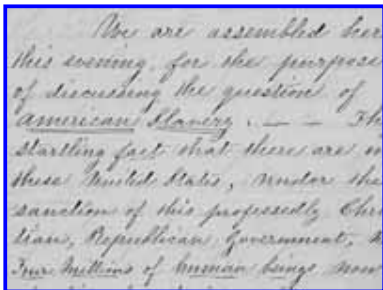 We are assembled her
this evening, for the purpose
of discussing the question of
American Slavery. — — Th
startling fact that there are in
these United States, under the
sanction of this professedly Chri
tian, Republican, Government,
Four Millions of human beings now